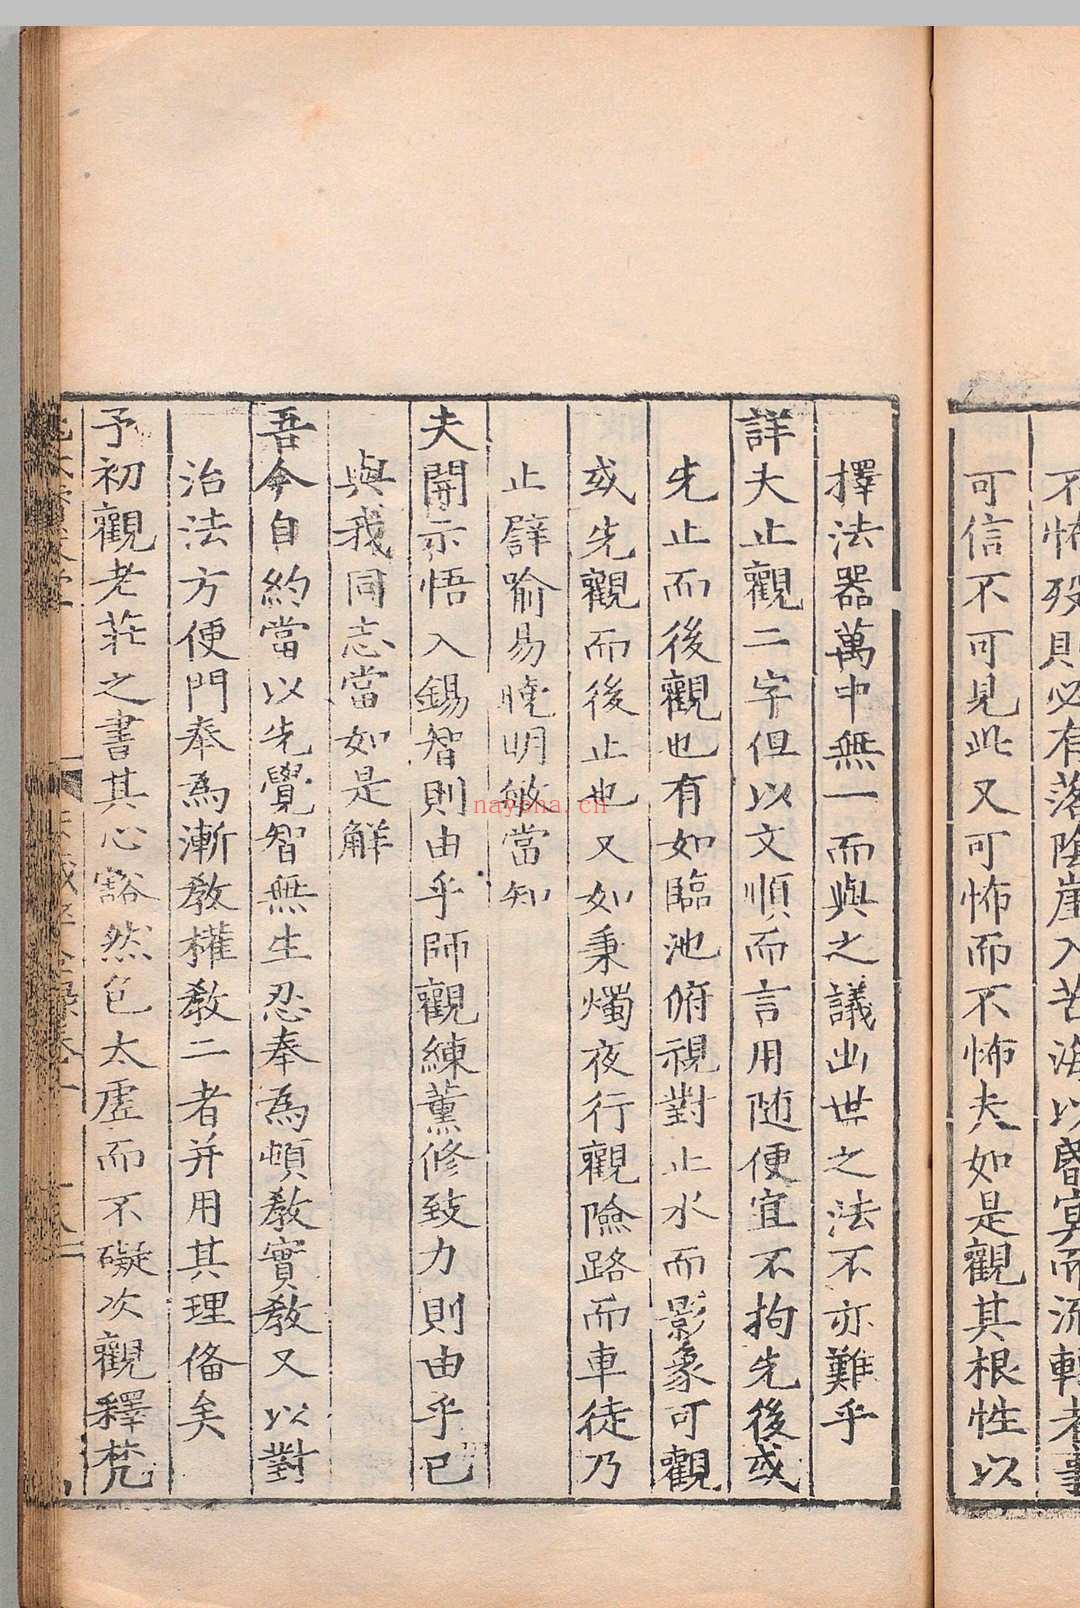 不怖歿則必有落陰崖入苦海以昬冥而流轉者事
可信不可見此又可怖而不怖夫如是觀其根性以
擇法器萬中無一而與之議出世之法不亦難乎
詳夫止觀二字但以文順而言用随便宜不拘先後或
先止而後觀也有如臨池俯視對止水而影象可觀
或先觀而後止也又如秉燭夜行觀險路而車徒乃
止譬喻易曉明敏當知
夫開示悟入錫智則由乎師觀練薰修致力則由乎已
與我同志當如是解
吾今自約當以先覺智無生忍奉為頓教實教又以對
治法方便門奉為漸教權教二者并用其理俻矣
予初觀老莊之書其心豁然色太虛而不礙次觀釋梵
nayona.cn